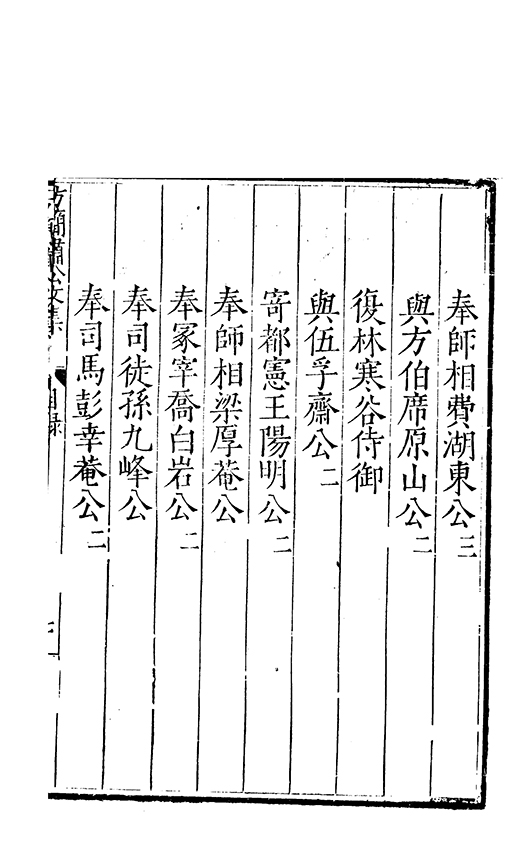 奉師相費湖東公三
與方伯席原山公二
復林寒谷侍御
與伍孚齋公二
寄都憲王陽明公二
奉師相梁厚菴公
奉冢宰喬白岩公二
奉司徒孫九峰公
奉司馬彭幸菴公二
方簡肅公文集
目錄